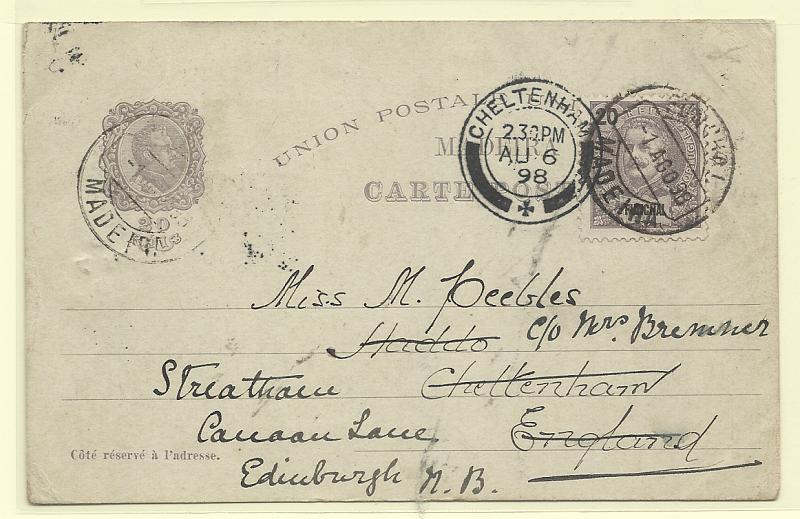 UNION POSTALE
MADEIRA
CARTE POST
CHELTENHAM
2.30PM
AU 6
98
20
FUNCHAL
1 AGO 98
MADEIRA
FUNCHAL
20
REIS
MADEIRA
Miss M. Peebles
Haddo c/o Mrs. Bremner
Streatham Cheltenham
Canaan Lane England
Côté réservé à l'adresse.
Edinburgh N.B.